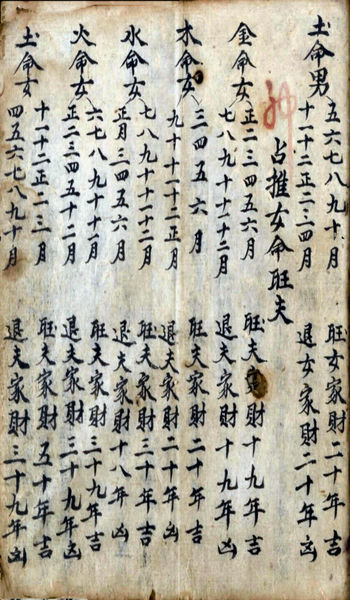 土命男 五六七八九十月 旺女家財二十年吉
十一十二正二三四月 退女家財二十年凶
占推女命旺夫
金命女 正二三四五六月 旺夫家財十九年吉
七八九十十一十二月 退夫家財十九年凶
木命女 三四五六月 旺夫家財二十年吉
九十十一十二正月 退夫家財二十年凶
水命女 七八九十十一十二月 旺夫家財三十年吉
正月三四五六月 退夫家財十八年凶
火命女 六七八九十十一月 旺夫家財三十九年吉
正二三四五十二月 退夫家財三十九年凶
土命女 十一十二正二三月 旺夫家財五十年吉
四五六七八九十月 退夫家財三十九年凶